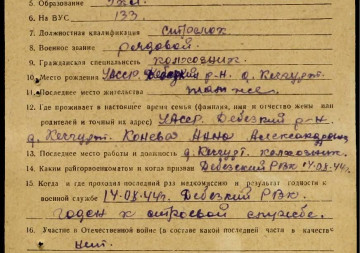 5. Образование 7кл.
6. На ВУС 133
7. Должностная квалификация стрелок
8. Военное звание рядовой.
9. Гражданская специальность колхозник
10. Место рождения УАССР. Дебесский р-н. д. Кесшурт.
11. Последнее место жительства там же.
12. Где проживает в настоящее время семья (фамилия, имя и отчество жены или
родителей и точный их адрес) УАССР. Дебесский р-н.
д. Кесшурт. Конева Анна Александровна
13. Последнее место работы и должность д. Кесшурт. колхозник.
14. Каким райгорвоенкоматом и когда призван Дебесский РВК 14.08.44г.
15. Когда и где проходил последний раз медкомиссию и результат годности к
военной службе 14.08.44г. Дебесский РВК.
годен к строевой службе.
16. Участие в Отечественной войне (в составе какой последней части в качестве
нет.